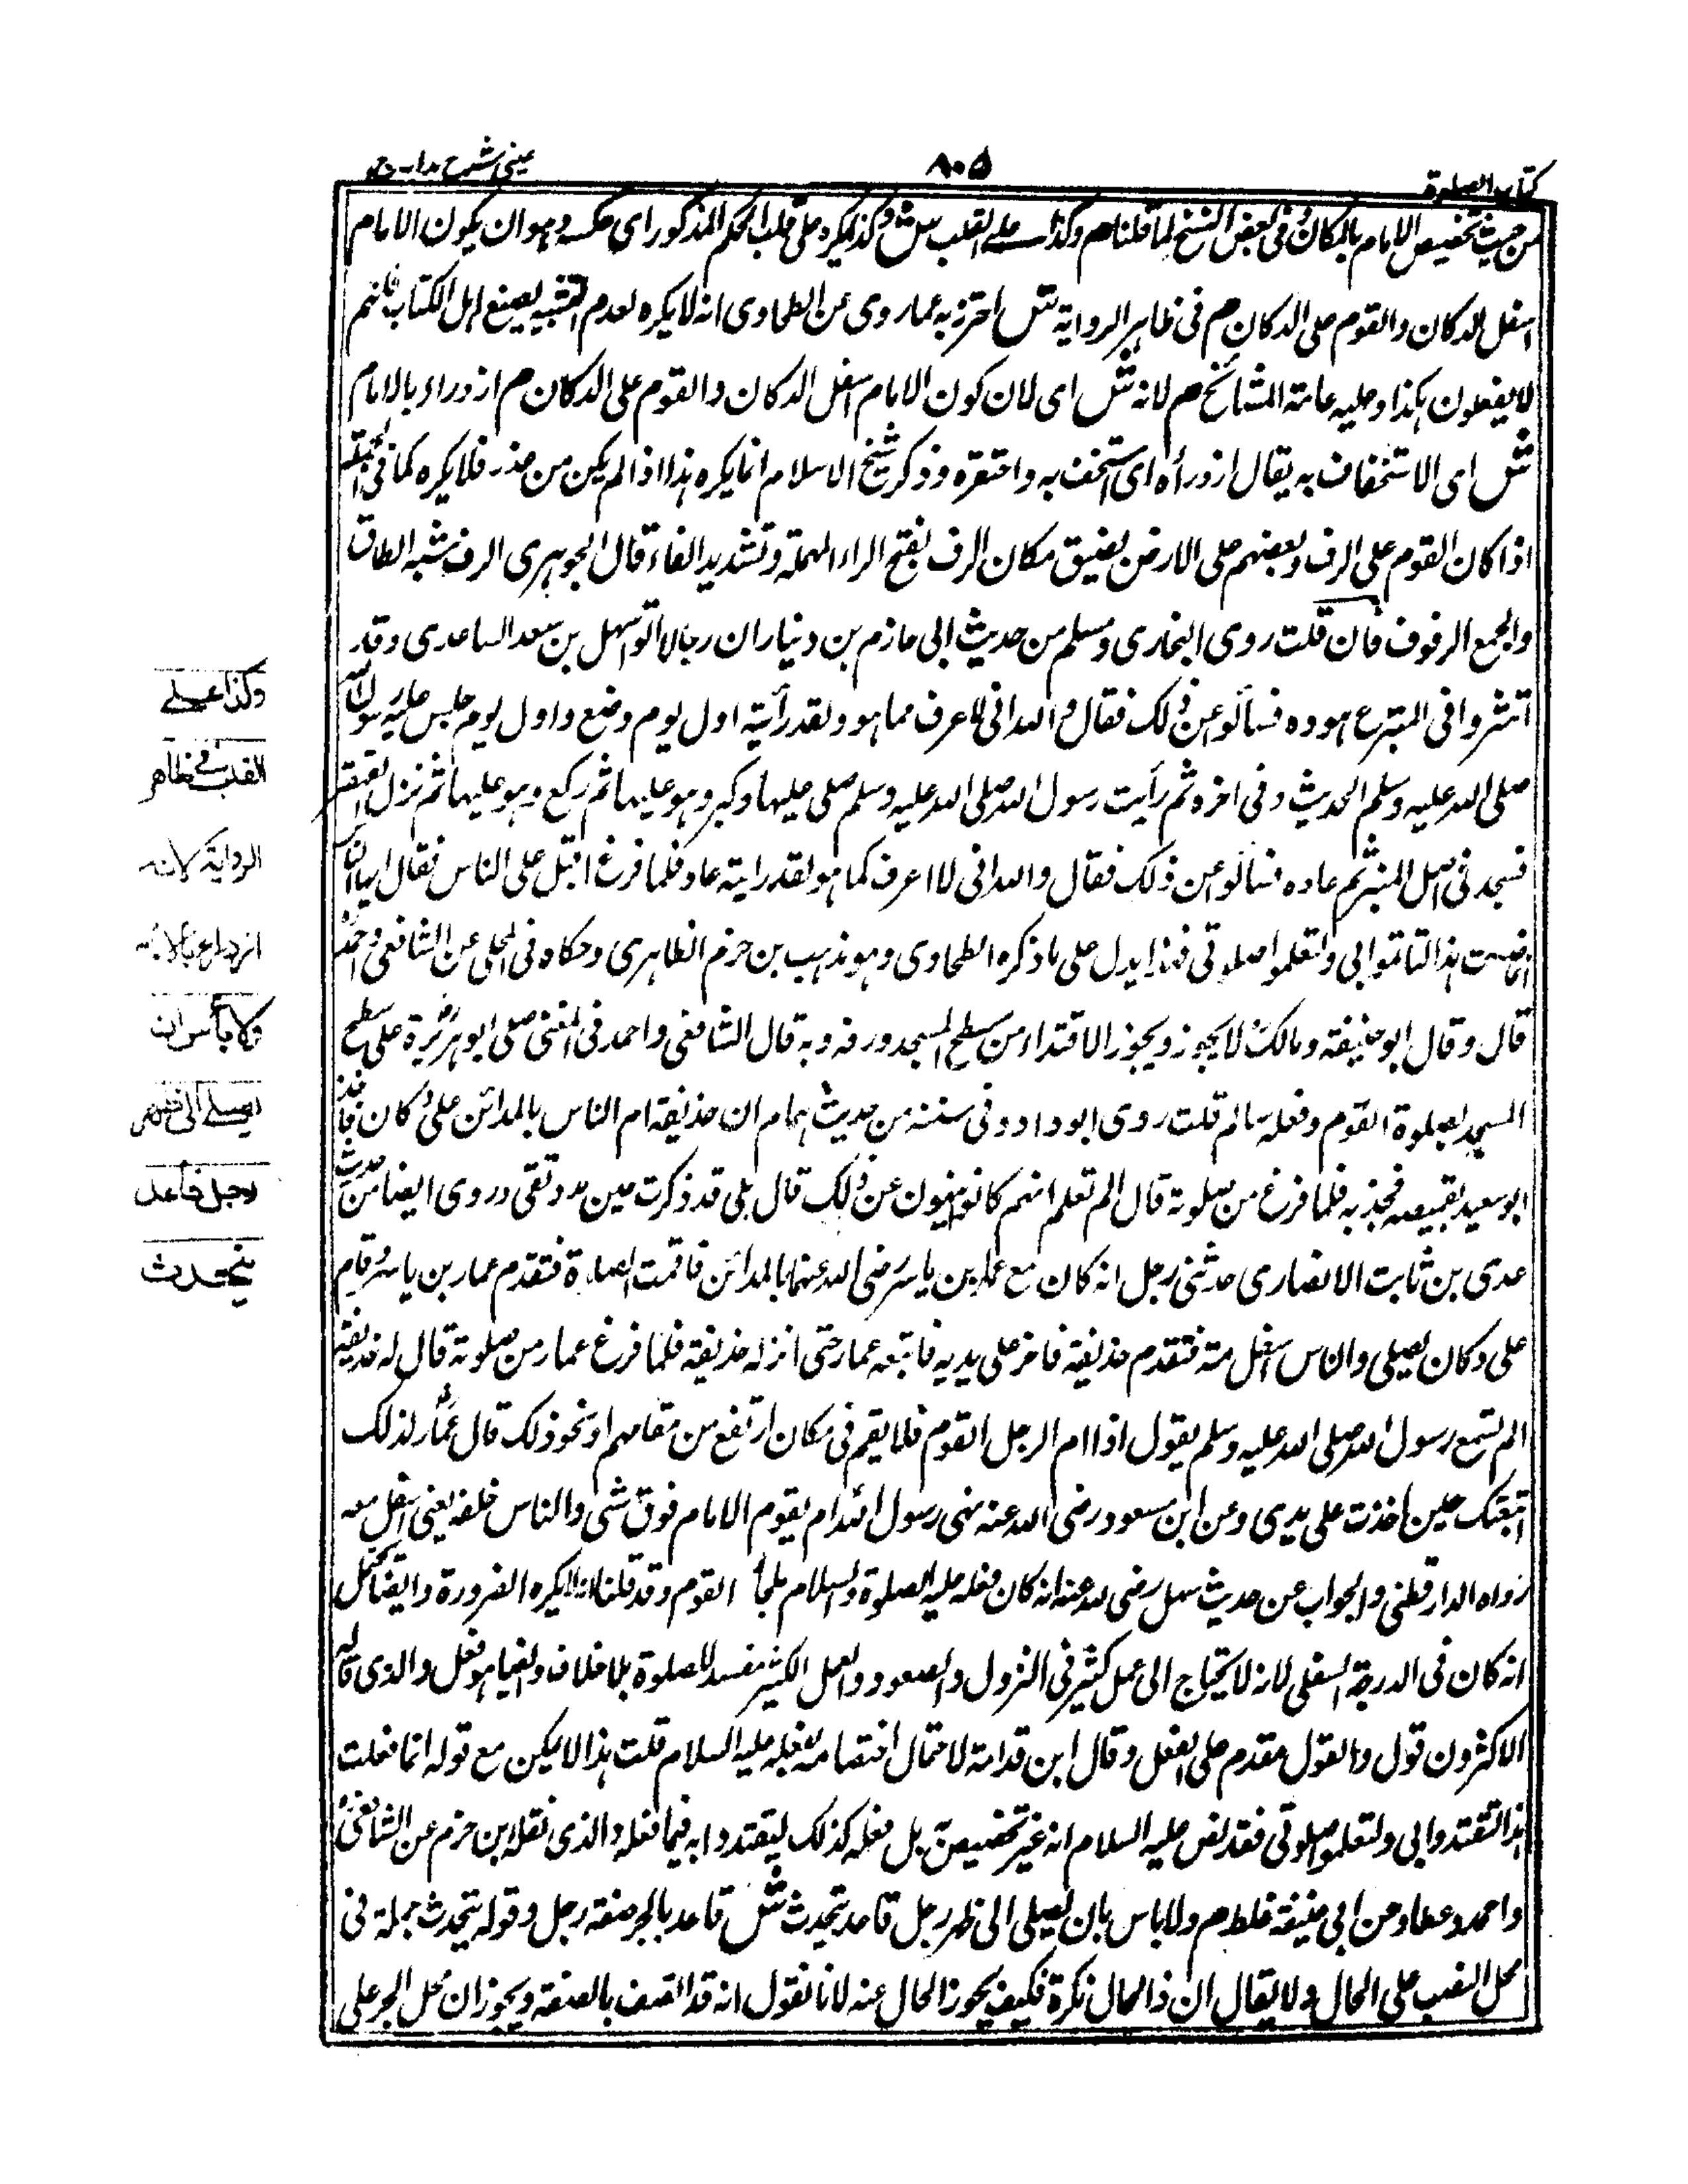 كتاب الصلوة
٨٠٥
عينى شرح هدايه ج
من حيث تخصيص الامام بالمكان وفى بعض النسخ لما قلنا م وكذا على القلب ش وكذا يكره على قلب الحكم المذكور اى عكسه وهو ان يكون الامام
اسفل الدكان والقوم على الدكان م فى ظاهر الرواية ش احترز به عما روى عن الطحاوى انه لا يكره لعدم التشبيه بصنع اهل الكتاب فانهم
لا يفعلون هكذا وعليه عامة المشائخ م لانه ش اى لان كون الامام اسفل الدكان والقوم على الدكان م ازدراء بالامام
ش اى الاستخفاف به يقال ازدرأه اى استخف به واحتقره وذكر شيخ الاسلام انما يكره هذا اذا لم يكن من عذر فلا يكره كما فى الجمعة
اذا كان القوم على الرف وبعضهم على الارض لضيق مكان الرف بفتح الراء المهملة وتشديد الفاء قال الجوهرى الرف شبه الطاق
والجمع الرفوف فان قلت روى البخارى ومسلم من حديث ابى حازم بن دينار ان رجالا اتوا سهل بن سعد الساعدى وقد
امتروا فى المنبر مم عوده فسألوه عن ذلك فقال والله انى لاعرف مما هو ولقد رأيته اول يوم وضع واول يوم جلس عليه رسول الله
صلى الله عليه وسلم الحديث وفى اخره ثم رأيت رسول الله صلى الله عليه وسلم صلى عليها وكبر وهو عليها ثم ركع وهو عليها ثم نزل القهقرى
فسجد فى اصل المنبر ثم عاد فسألوه عن ذلك فقال والله انى لا اعرف كما هو ولقد رايته عاد فلما فرغ اقبل على الناس فقال ايها الناس
انما صنعت هذا لتأتموا بى ولتعلموا صلوتى فهذا يدل على ما ذكره الطحاوى وهو مذهب بن حزم الظاهرى وحكاه فى المحلى عن الشافعى واحمد
قال وقال ابو حنيفة ومالك لا يجوز ويجوز الاقتداء من سطح المسجد ورفه وبه قال الشافعى واحمد فى المغنى صلى ابو هريرة على سطح
المسجد بصلوة القوم وفعله سالم قلت روى ابو داود فى سننه من حديث همام ان حذيفة ام الناس بالمدائن على دكان فأخذ
ابو سعيد بقميصه فجذبه فلما فرغ من صلوته قال الم تعلم انهم كانوا ينهون عن ذلك قال بلى قد ذكرت حين مددتنى وروى ايضا من حديث
عدى بن ثابت الانصارى حدثنى رجل انه كان مع عمار بن ياسر رضى الله عنهما بالمدائن فاقمت الصلاة فتقدم عمار بن ياسر وقام
على دكان يصلى والناس اسفل منه فتقدم حذيفة فاخذ على يديه فاتبعه عمار حتى انزله حذيفة فلما فرغ عمار من صلوته قال له حذيفة
الم تسمع رسول الله صلى الله عليه وسلم يقول اذا ام الرجل القوم فلا يقم فى مكان ارفع من مقامهم او نحو ذلك قال عمار لذلك
اتبعتك حين اخذت على يدى وعن ابن مسعود رضى الله عنه نهى رسول الله ام يقوم الامام فوق شئ والناس خلفه يعنى اسفل منه
رواه الدارقطنى والجواب عن حديث سهل رضى الله عنه انه كان فعله عليه الصلوة والسلام ملجأ القوم وقد قلنا انه لا يكره الضرورة وايضا يحتمل
انه كان فى الدرجة السفلى لانه لا يحتاج الى عمل كثير فى النزول والصعود والعمل الكثير مفسد للصلوة بلا خلاف وايضا هو فعل والذى قاله
الاكثرون قول والقول مقدم على الفعل وقال ابن قدامة لاحتمال اختصاصه بفعله عليه السلام قلت هذا لا يمكن مع قوله انما فعلت
هذا لتقتدوا بى ولتعلموا صلوتى فقد نص عليه السلام انه غير تخصيص به بل فعله كذلك ليقتدوا به فيما فعله والذى نقله ابن حزم عن الشافعى
واحمد وعطا وعن ابى حنيفة غلط م ولا باس بان يصلى الى ظهر رجل قاعد يتحدث ش قاعد بالجر صفة رجل وقوله يتحدث جملة فى
محل النصب على الحال ولا يقال ان ذا الحال نكرة فكيف يجوز الحال عنه لانا نقول انه قد اتصف بالصفة ويجوز ان محل الجر على
وكذا على
القلب فى ظاهر
الرواية لانه
ازدراء بالامام
ولا بأس ان
يصلى الى ظهر
رجل قاعد
يتحدث